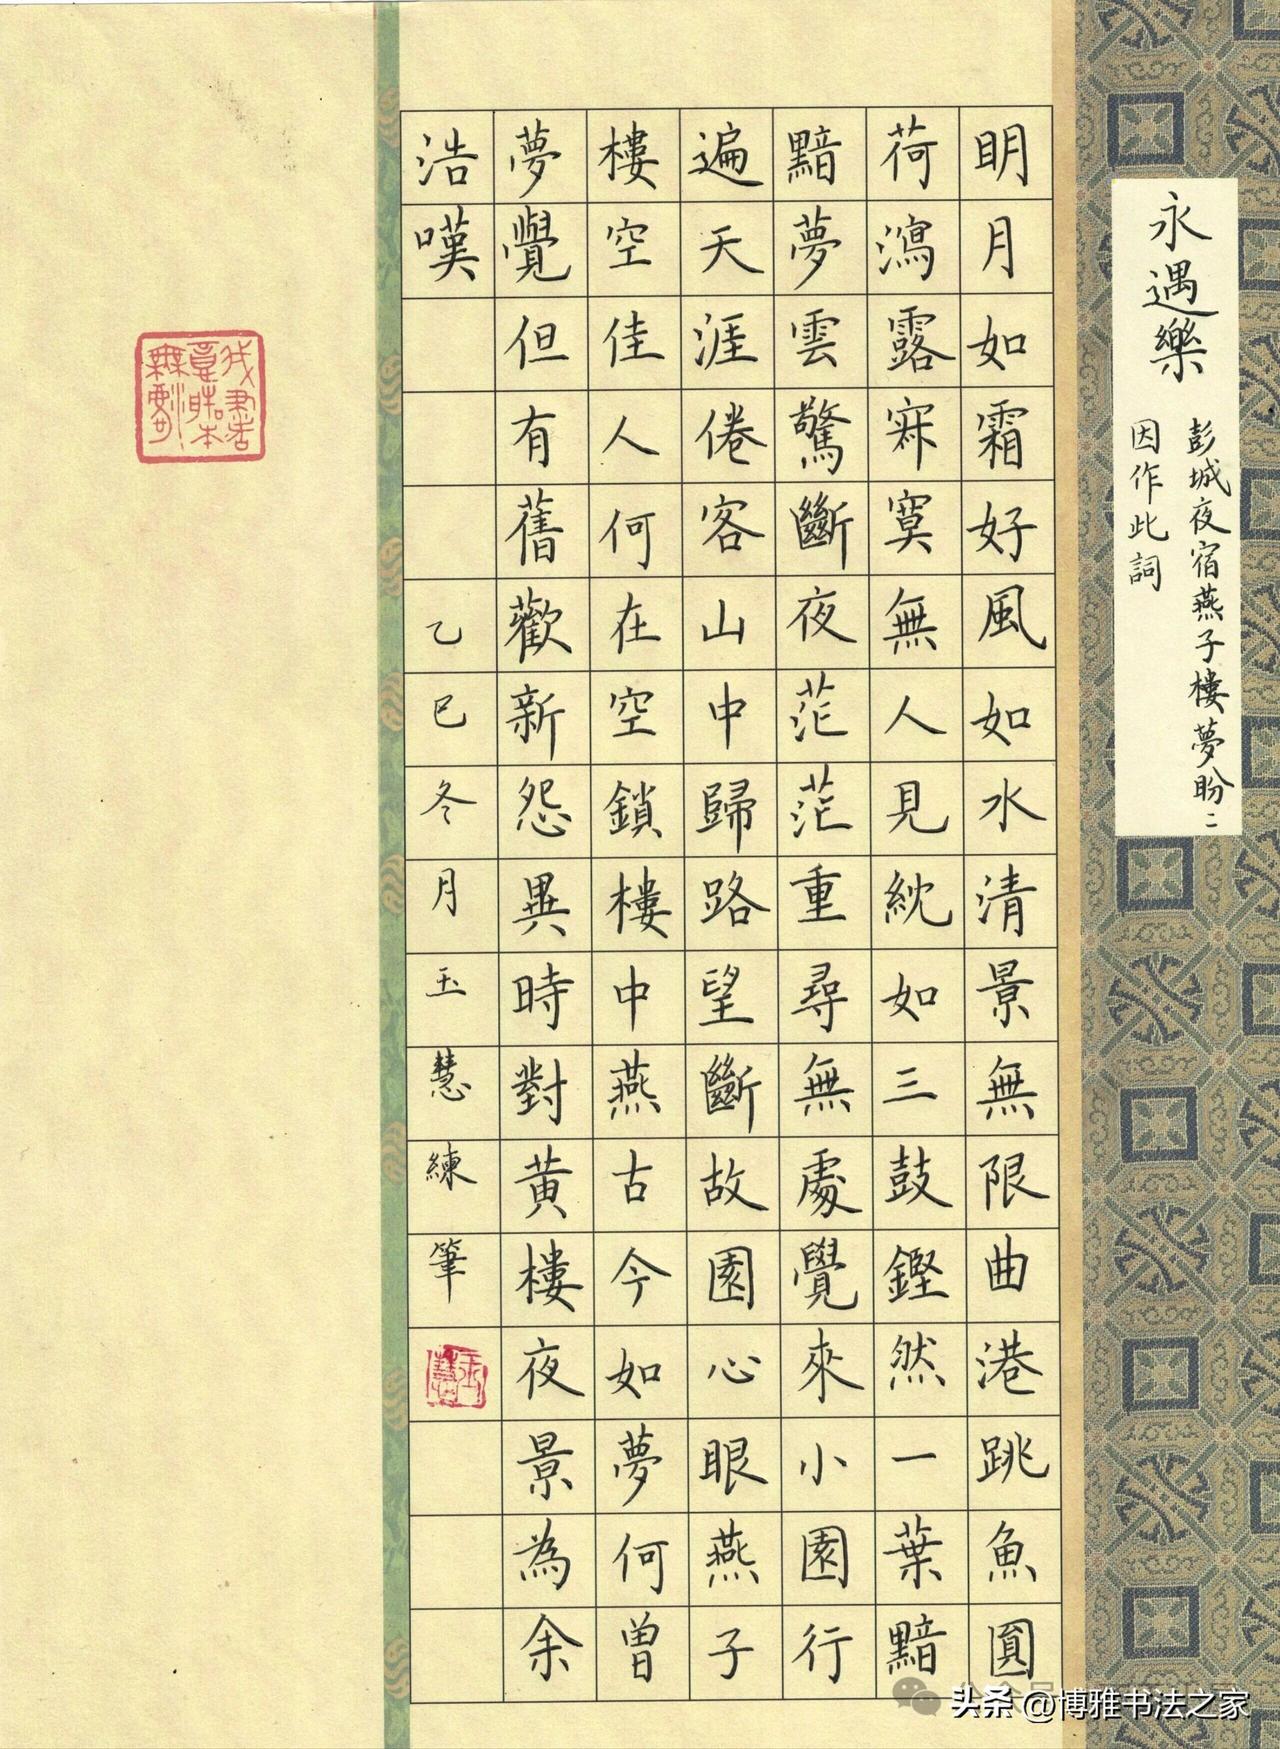 永遇樂
彭城夜宿燕子樓夢盼〻
因作此詞
明月如霜好風如水清景無限曲港跳魚圓
荷瀉露寂寞無人見紞如三鼓鏗然一葉黯
黯夢雲驚斷夜茫茫重尋無處覺來小園行
遍天涯倦客山中歸路望斷故園心眼燕子
樓空佳人何在空鎖樓中燕古今如夢何曾
夢覺但有舊歡新怨異時對黃樓夜景為余
浩嘆
乙巳冬月玉慧練筆
玉慧
头条 @博雅书法之家